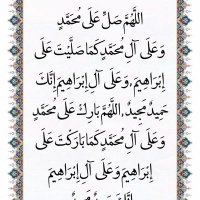 اللَّهُمَّ صَلِّ عَلَى مُحَمَّدٍ
وَعَلَى آلِ مُحَمَّدٍ كَمَا صَلَّيْتَ عَلَى
إِبْرَاهِيمَ وَعَلَى آلِ إِبْرَاهِيمَ إِنَّكَ
حَمِيدٌ مَجِيدٌ، اللَّهُمَّ بَارِكْ عَلَى مُحَمَّدٍ
وَعَلَى آلِ مُحَمَّدٍ كَمَا بَارَكْتَ عَلَى
إِبْرَاهِيمَ وَعَلَى آلِ إِبْرَاهِيمَ